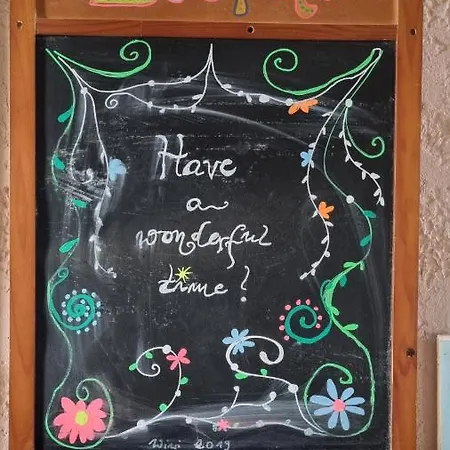 Have
a
wonderful
time!
Wini 2019